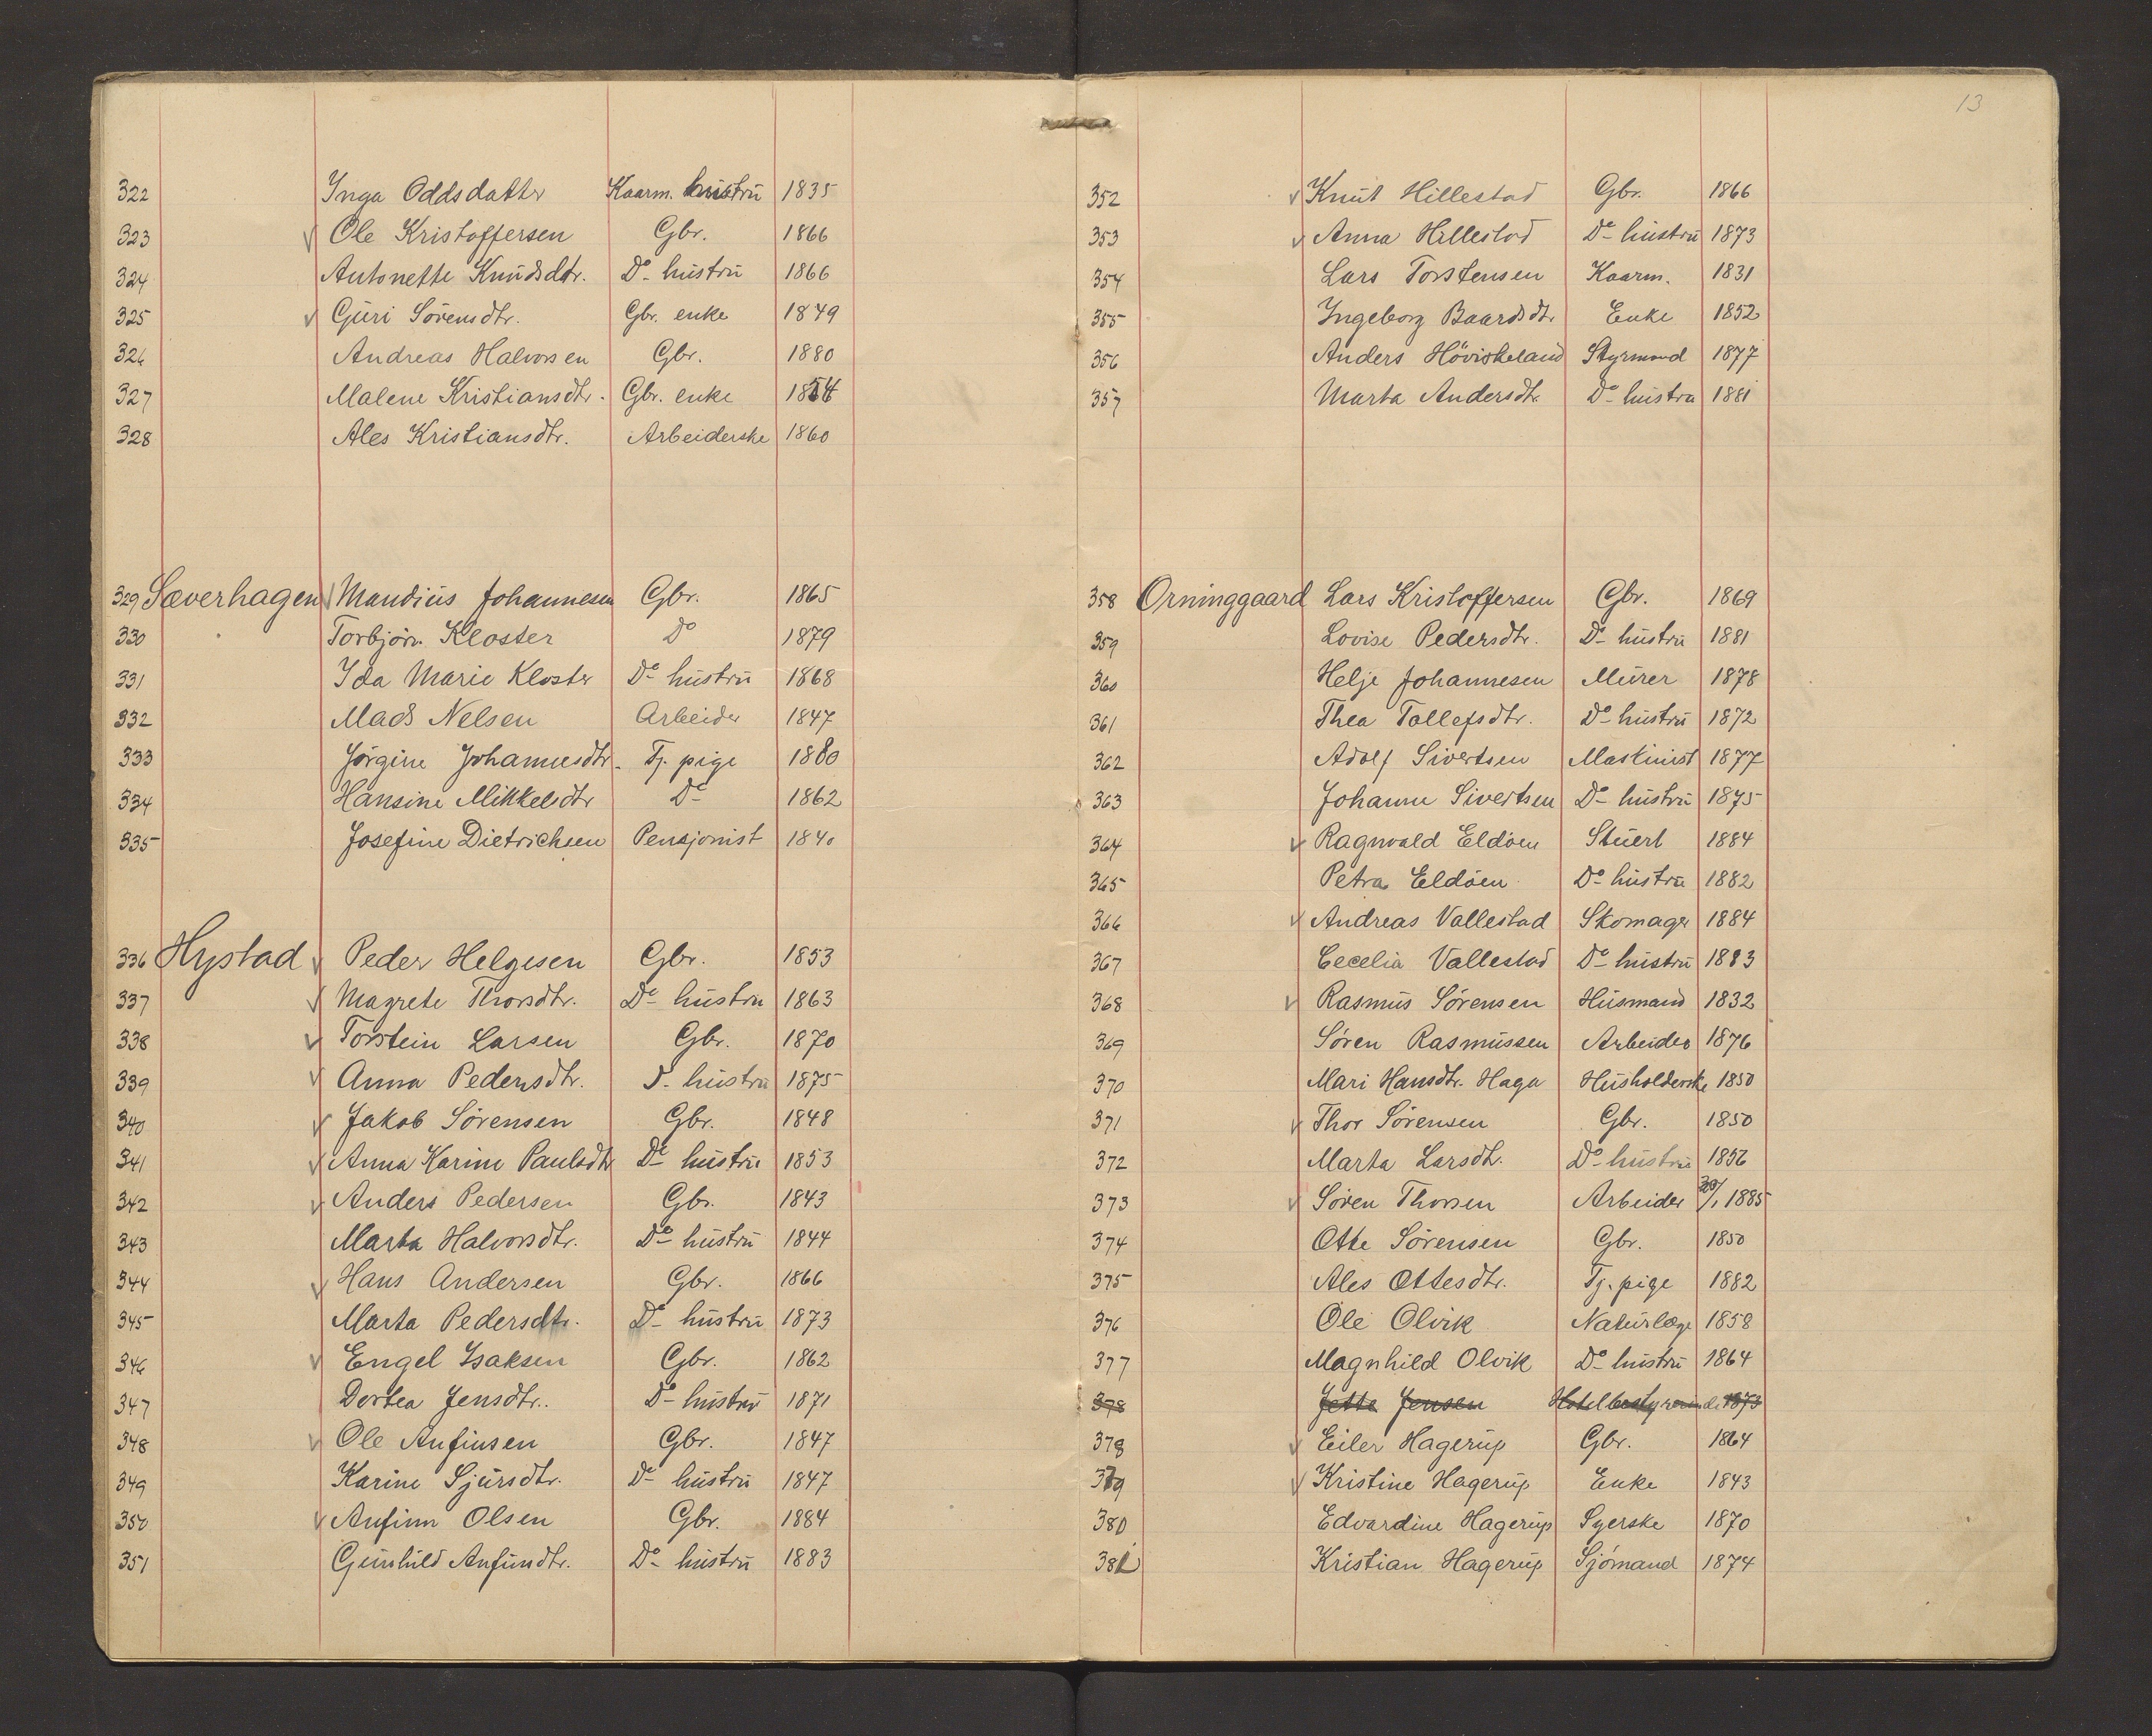 322 Inga Oddsdatter Kaarm. hustru 1835
323 ✓ Ole Kristoffersen Gbr. 1866
324 Antonette Knudsdtr. Do hustru 1866
325 ✓ Guri Sörensdtr. Gbr. enke 1849
326 Andreas Halvorsen Gbr. 1880
327 Malene Kristiansdtr. Gbr. enke 1854
328 Ales Kristiansdtr. Arbeiderske 1860
329 Sæverhagen ✓ Mandius Johannesen Gbr. 1865
330 Torbjörn Kloster Do 1879
331 Ida Marie Kloster Do hustru 1868
332 Mads Nelsen Arbeider 1847
333 Jörgine Johannesdtr. Tj. pige 1880
334 Hansine Mikkelsdtr Do 1862
335 Josefine Dietrichsen Pensjonist 1840
336 Hystad ✓ Peder Helgesen Gbr. 1853
337 ✓ Magrete Thorsdtr. Do hustru 1863
338 ✓ Torstein Larsen Gbr. 1870
339 ✓ Anna Pedersdtr. D. hustru 1875
340 ✓ Jakob Sörensen Gbr. 1848
341 ✓ Anna Karine Paulsdtr Do hustru 1853
342 ✓ Anders Pedersen Gbr. 1843
343 Marta Halvorsdtr. Do hustru 1844
344 ✓ Hans Andersen Gbr. 1866
345 Marta Pedersdtr. Do hustru 1873
346 ✓ Engel Isaksen Gbr. 1862
347 Dortea Jensdtr. Do hustru 1871
348 ✓ Ole Anfinsen Gbr. 1847
349 Karine Sjursdtr. Do hustru 1847
350 ✓ Anfinn Olsen Gbr. 1884
351 Gunhild Anfinndtr. Do hustru 1883
13
352 ✓ Knut Hillestad Gbr. 1866
353 ✓ Anna Hillestad Do hustru 1873
354 Lars Torstensen Kaarm. 1831
355 Ingeborg Baardsdtr Enke 1852
356 Anders Höviskeland Styrmand 1877
357 Marta Andersdtr. Do hustru 1881
358 Orninggaard Lars Kristoffersen Gbr. 1869
359 Lovise Pedersdtr. Do hustru 1881
360 Helje Johannesen Murer 1878
361 Thea Tollefsdtr. Do hustru 1872
362 Adolf Sivertsen Maskinist 1877
363 Johanne Sivertsen Do hustru 1875
364 ✓ Ragnvald Eldöen Stuert 1884
365 Petra Eldöen Do hustru 1882
366 ✓ Andreas Vallestad Skomager 1884
367 Cecelia Vallestad Do hustru 1883
368 ✓ Rasmus Sörensen Husmand 1832
369 Sören Rasmussen Arbeider 1876
370 Mari Hansdtr. Haga Husholderske 1850
371 ✓ Thor Sörensen Gbr. 1850
372 Marta Larsdtr. Do hustru 1856
373 ✓ Sören Thorsen Arbeider 20/1 1885
374 Otte Sörensen Gbr. 1850
375 Ales Ottesdtr. Tj. pige 1882
376 Ole Olvik Naturlæge 1858
377 Magnhild Olvik Do hustru 1864
378 Jette Jensen Hotelbestyrerinde 1873
378 ✓ Eiler Hagerup Gbr. 1864
379 ✓ Kristine Hagerup Enke 1843
380 Edvardine Hagerup Syerske 1870
381 Kristian Hagerup Sjömand 1874